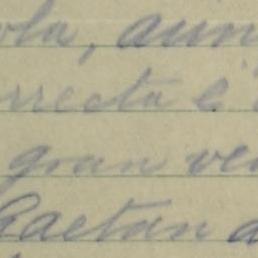 ola, aun
rrecta é
gran ve
Gaetan d